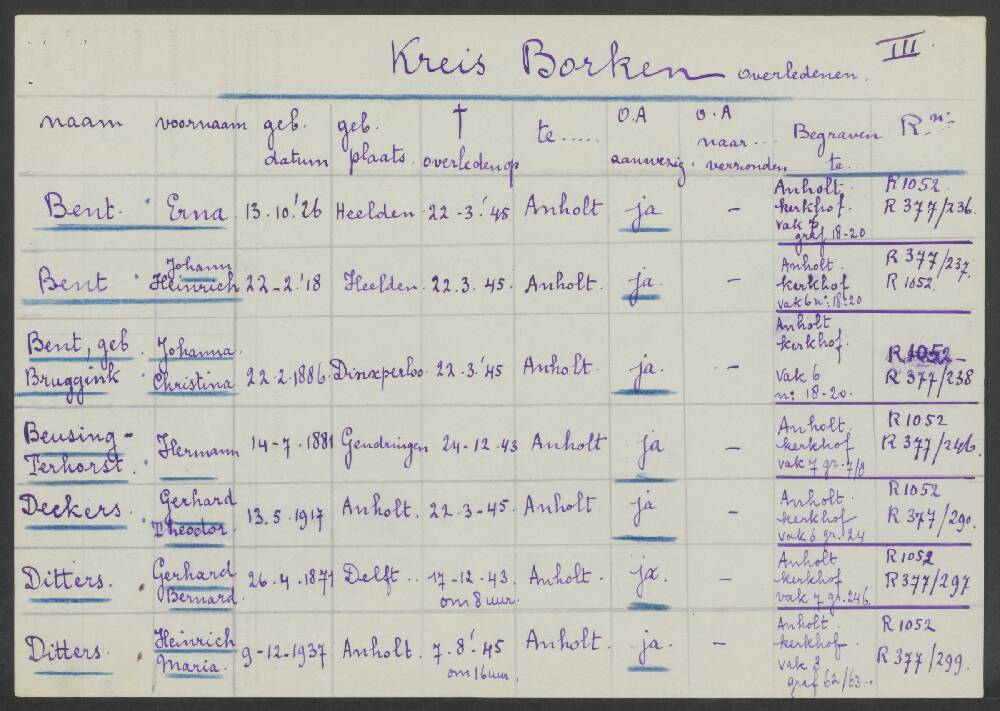 Kreis Borken overledenen. III.
naam voornaam geb. datum geb. plaats. † overleden op te..... O.A aanwezig O.A naar... verzonden Begraven te... R nº
Bent. Erna 13.10.'26 Heelden 22-3.'45 Anholt ja - Anholt. kerkhof. vak 7 graf 18-20 R1052. R 377/236.
Bent Johann Heinrich 22-2.'18 Heelden. 22.3.45. Anholt. ja. - Anholt. kerkhof vak 6 nº: 18-20 R 377/237. R 1052.
Bent, geb. Bruggink Johanna. Christina 22.2.1886. Dinxperloo 22-3.'45 Anholt. ja. - Anholt kerkhof. vak 6 nº 18-20. R 1052- R 377/238
Beusing-Terhorst. Hermann 14-7.1881 Gendringen 24-12.43 Anholt ja - Anholt. kerkhof vak 7 gr. 7/8 R1052 R 377/246.
Deckers. Gerhard Theodor. 13.5.1917 Anholt. 22-3-45. Anholt. ja - Anholt. kerkhof vak 6 gr. 24 R1052 R 377/290.
Ditters. Gerhard Bernard. 26.4.1871 Delft.. 17-12-43. om 8 uur. Anholt. ja. - Anholt kerkhof vak 7 gr. 246. R1052 R377/297
Ditters. Heinrich Maria. 9-12-1937 Anholt. 7-8'45 om 16 uur. Anholt. ja. - Anholt. kerkhof. vak 3 graf 62/63... R 1052 R 377/299.